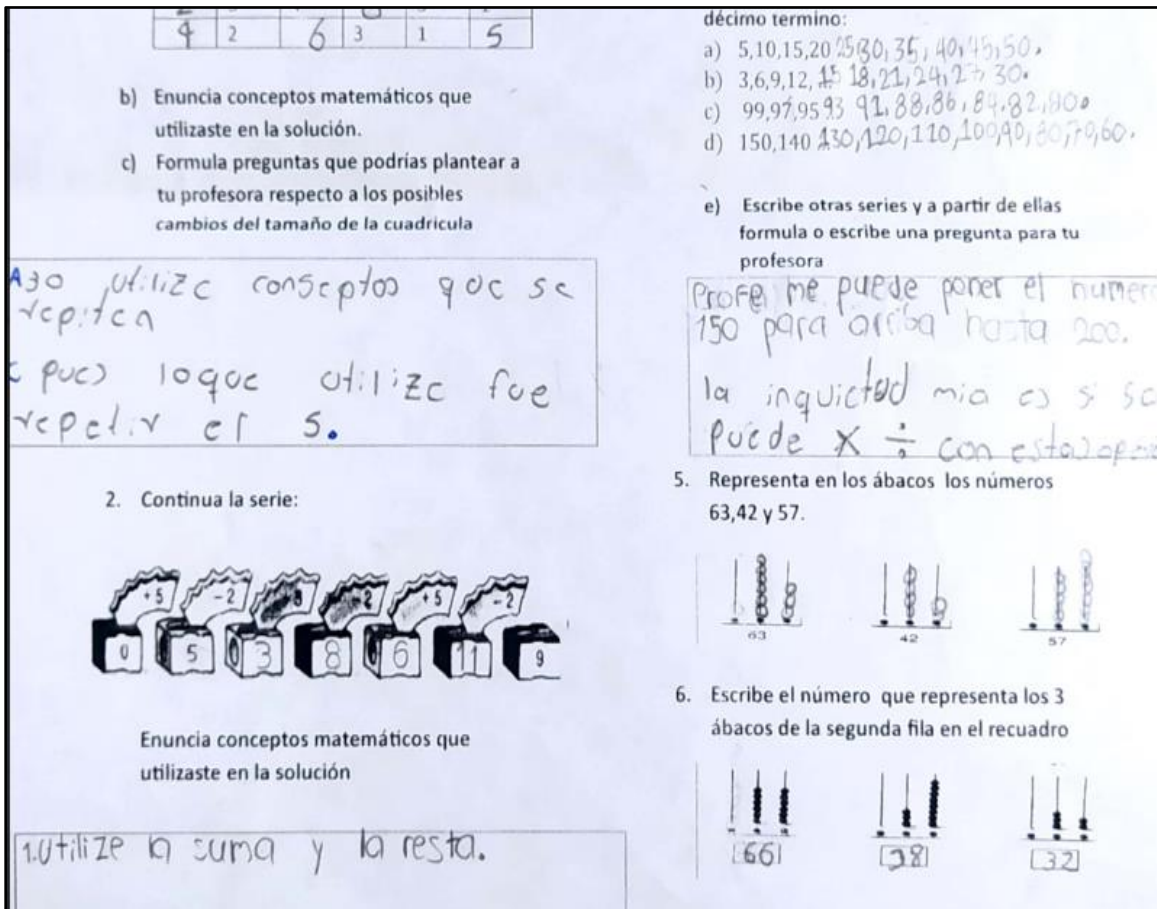 4 2 6 3 1 5
b) Enuncia conceptos matemáticos que
utilizaste en la solución.
c) Formula preguntas que podrías plantear a
tu profesora respecto a los posibles
cambios del tamaño de la cuadrícula
utilize conseptos que se
repiten
pues loque utilize fue
repetir el 5.
2. Continua la serie:
+5 -2 -2 +5 -2
0 5 3 8 6 11 9
Enuncia conceptos matemáticos que
utilizaste en la solución
1. utilize la suma y la resta.
décimo termino:
a) 5,10,15,20 25 30, 35, 40, 45, 50.
b) 3,6,9,12, 15 18, 21, 24, 27, 30.
c) 99,97,95 93 91, 88, 86, 84, 82, 80.
d) 150,140 130, 120, 110, 100, 90, 80, 70, 60.
e) Escribe otras series y a partir de ellas
formula o escribe una pregunta para tu
profesora
Profe me puede poner el numero
150 para arriba hasta 200.
la inquietud mia es si se
puede X ÷ con estas
5. Representa en los ábacos los números
63,42 y 57.
63 42 57
6. Escribe el número que representa los 3
ábacos de la segunda fila en el recuadro
66 38 32